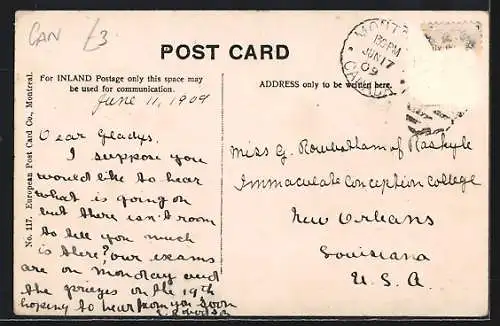 CAN £3
POST CARD
MONT
PM
JUN 17
09
CANADA
For INLAND Postage only this space may
be used for communication.
ADDRESS only to be written here.
June 11, 1909
Dear Gladys,
I suppose you
would like to hear
what is going on
but there isn't room
to tell you much
is there? Our exams
are on Monday and
the prizes on the 19th
hoping to hear from you soon
Miss G. of
Immaculate Conception College
New Orleans
Louisiana
U. S. A.
No. 117. European Post Card Co., Montreal.